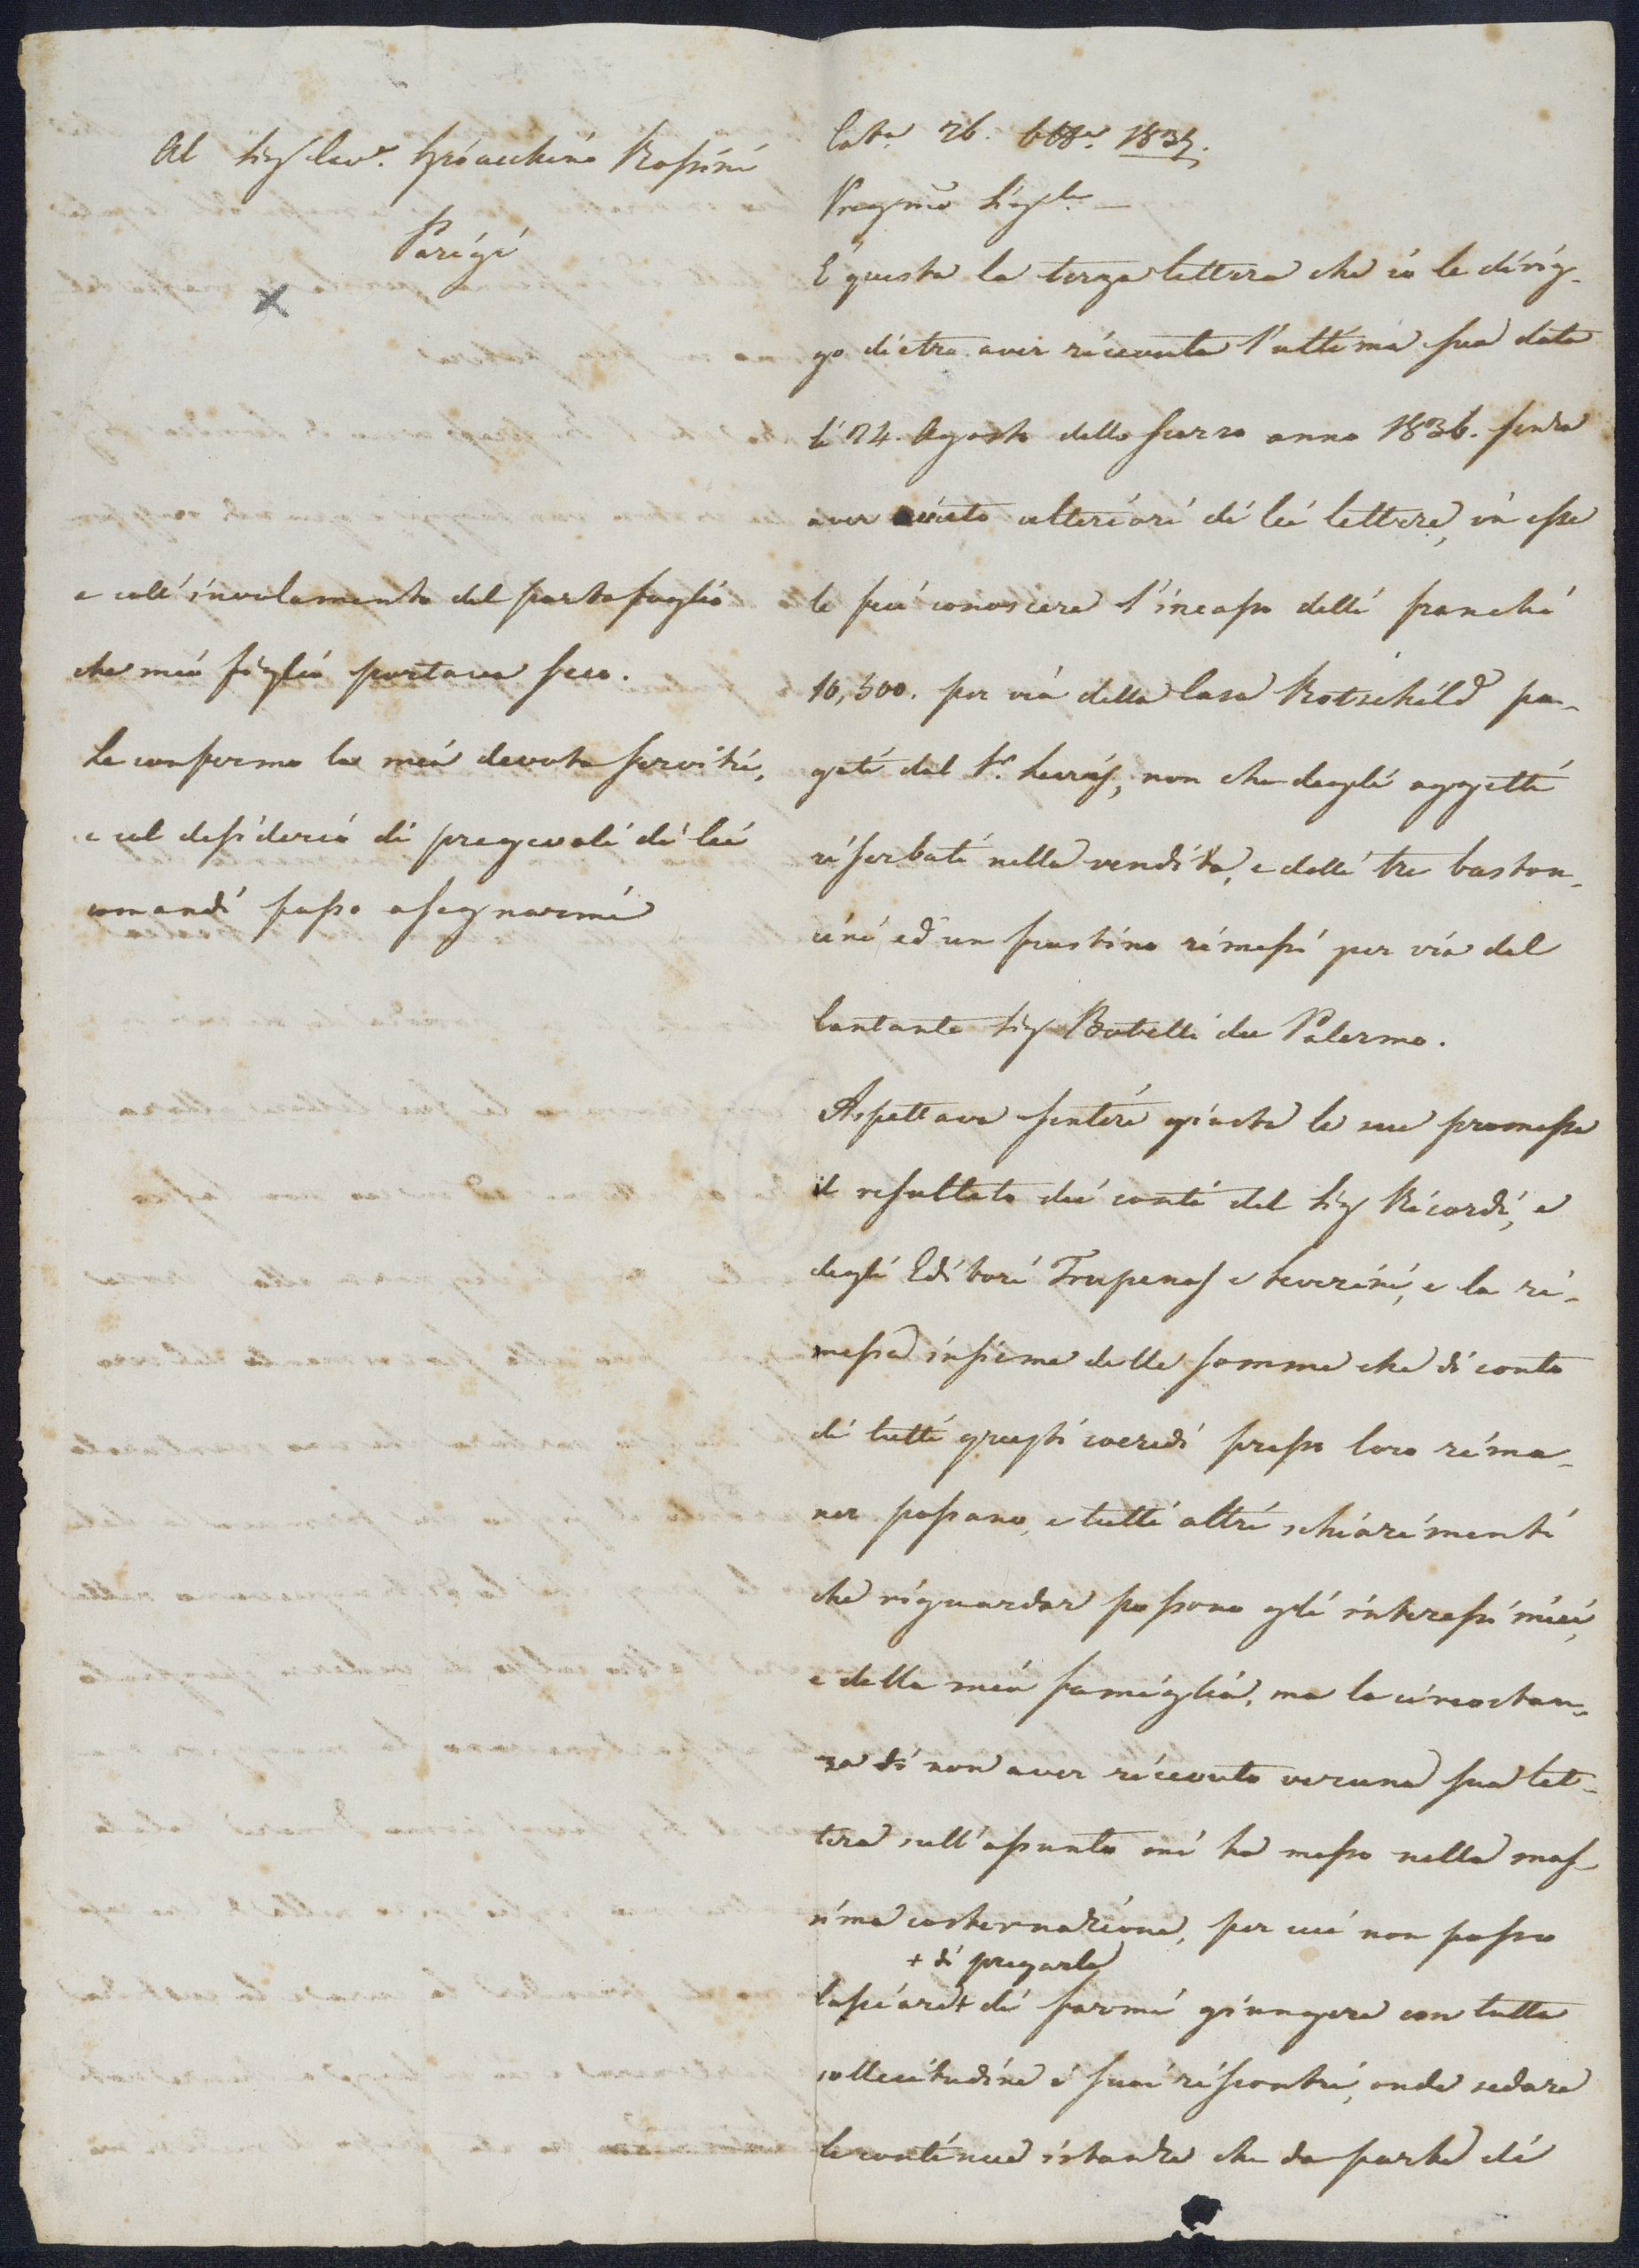 Al Sig Cav.r Gioacchino Rossini
Parigi
e coll'involamento del portafoglio
che mio figlio portava seco.
Le confermo la mia devota servitù,
e col desiderio di pregevoli di lei
comandi passo a segnarmi
Cat.a 26. 1837.
Pregmo Sig.le
È questa la terza lettera che io le dirig-
go dietro aver ricevuta l'ultima sua data
li 24. Agosto dello scorso anno 1836. senza
aver avuto ulteriori di lei lettere, in esse
le feci conoscere l'incasso delli franchi
10,500. per via della Casa Rotschild pa-
gati dal Sr. Severini, non che degli oggetti
riserbati nella vendita, e delli tre baston-
cini ed un frustino rimessi per via del
Cantante Sig da Palermo.
Aspettava sentire giusta le sue promesse
il resultato dei conti del Sig Ricordi, e
degli Editori Trupenas e Severini, e la ri-
messa insieme delle somme che di conto
di tutti questi coeredi presso loro rima-
ner possano, e tutti altri schiarimenti
che riguardar possono gli interessi miei,
e della mia famiglia, ma la circostan-
za di non aver ricevuto veruna sua let-
tera sull'assunto mi ha messo nella mas-
sima costernazione, per cui non posso
+ di pregarla
lasciare+ di farmi giungere con tutta
sollecitudine i suoi riscontri, onde sedare
le continue istanze che da parte di